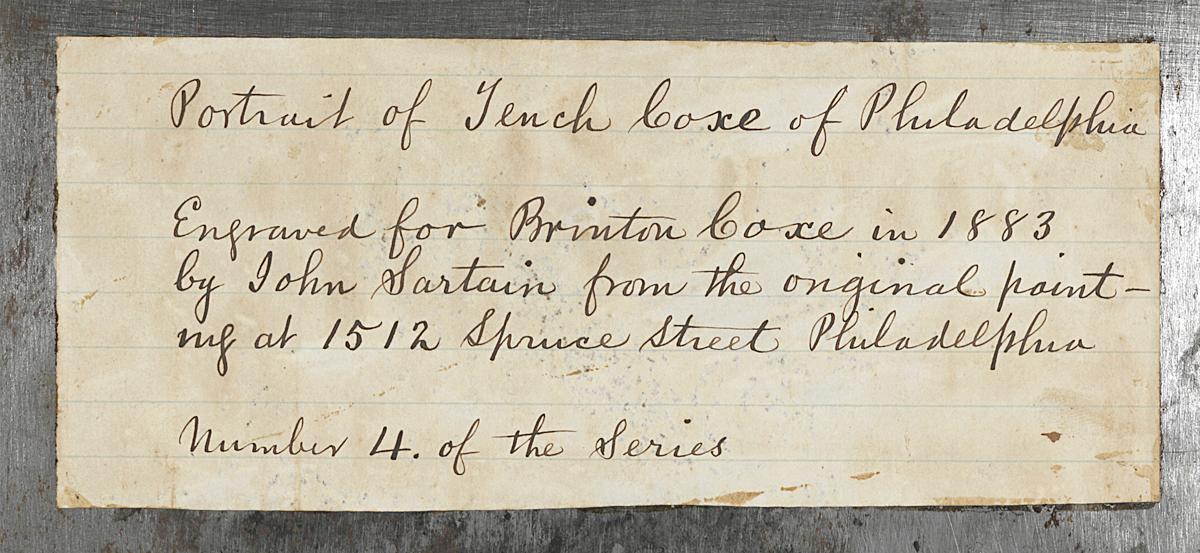 Portrait of Tench Coxe of Philadelphia
Engraved for Brinton Coxe in 1883
by John Sartain from the original paint-
ing at 1512 Spruce Street Philadelphia
Number 4. of the Series